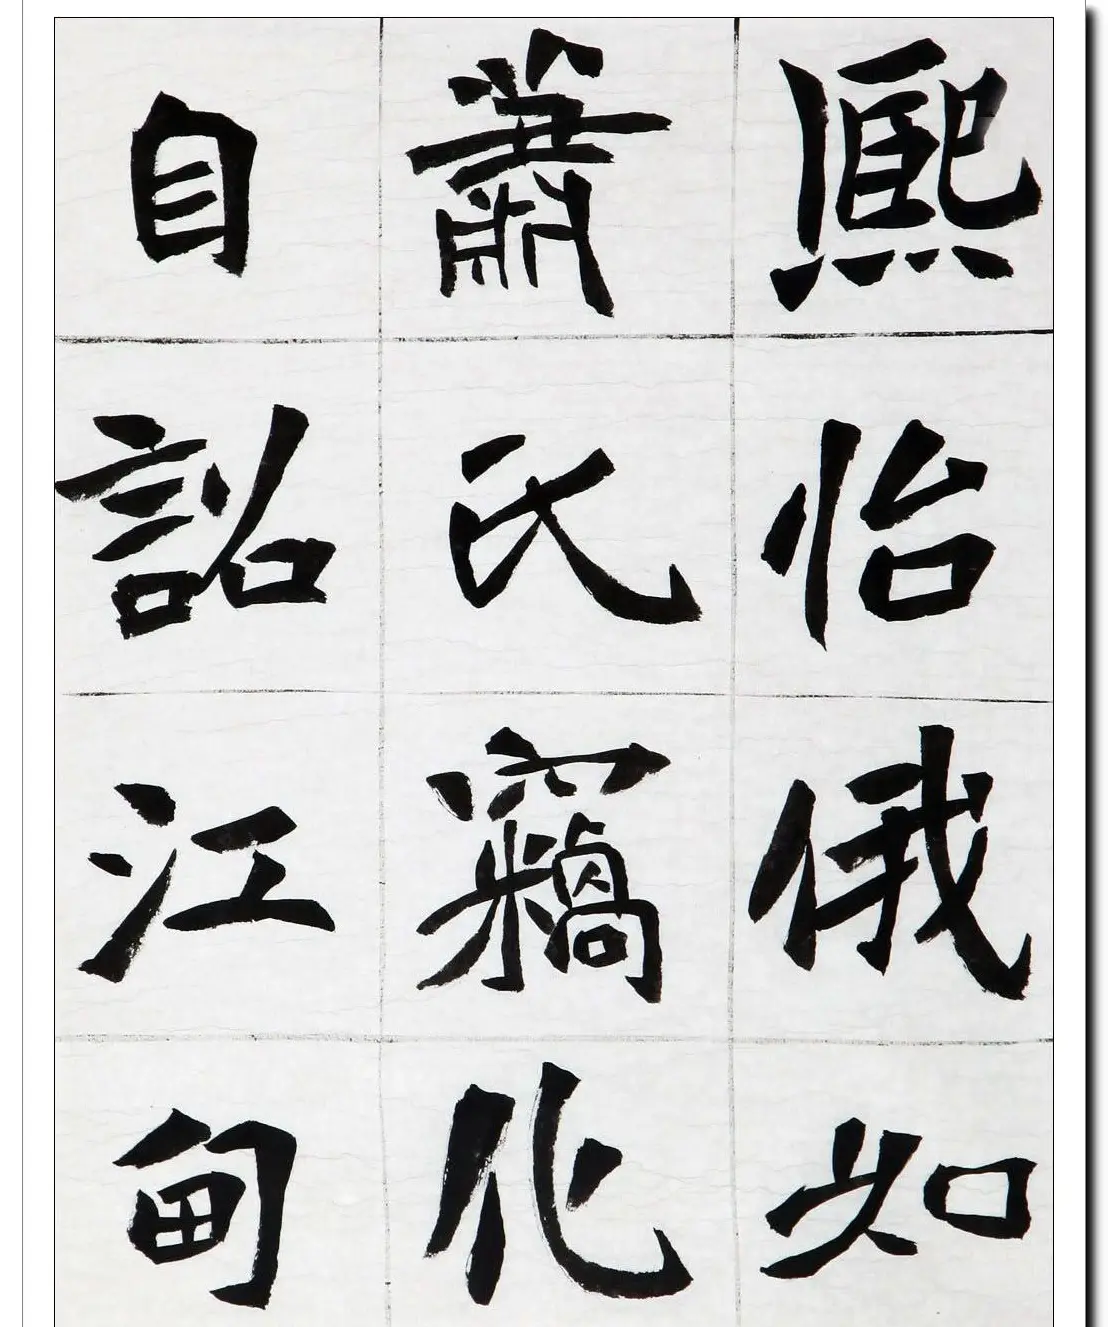 熙怡俄如
蕭氏竊化
自詔江甸